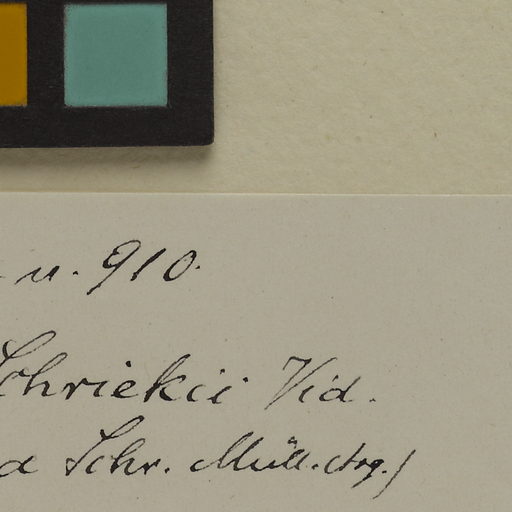 n. 910.
Schriekii Vid.
Schr. Müll. Arg.)